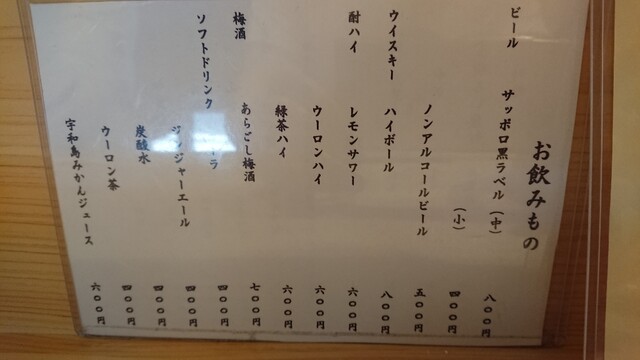 お飲みもの
ビール サッポロ黒ラベル（中） 八〇〇円
（小） 四〇〇円
ノンアルコールビール 五〇〇円
ウイスキー ハイボール 八〇〇円
酎ハイ レモンサワー 六〇〇円
ウーロンハイ 六〇〇円
緑茶ハイ 六〇〇円
梅酒 あらごし梅酒 七〇〇円
ソフトドリンク ラ 四〇〇円
ジンジャーエール 四〇〇円
炭酸水 四〇〇円
ウーロン茶 四〇〇円
宇和島みかんジュース 六〇〇円